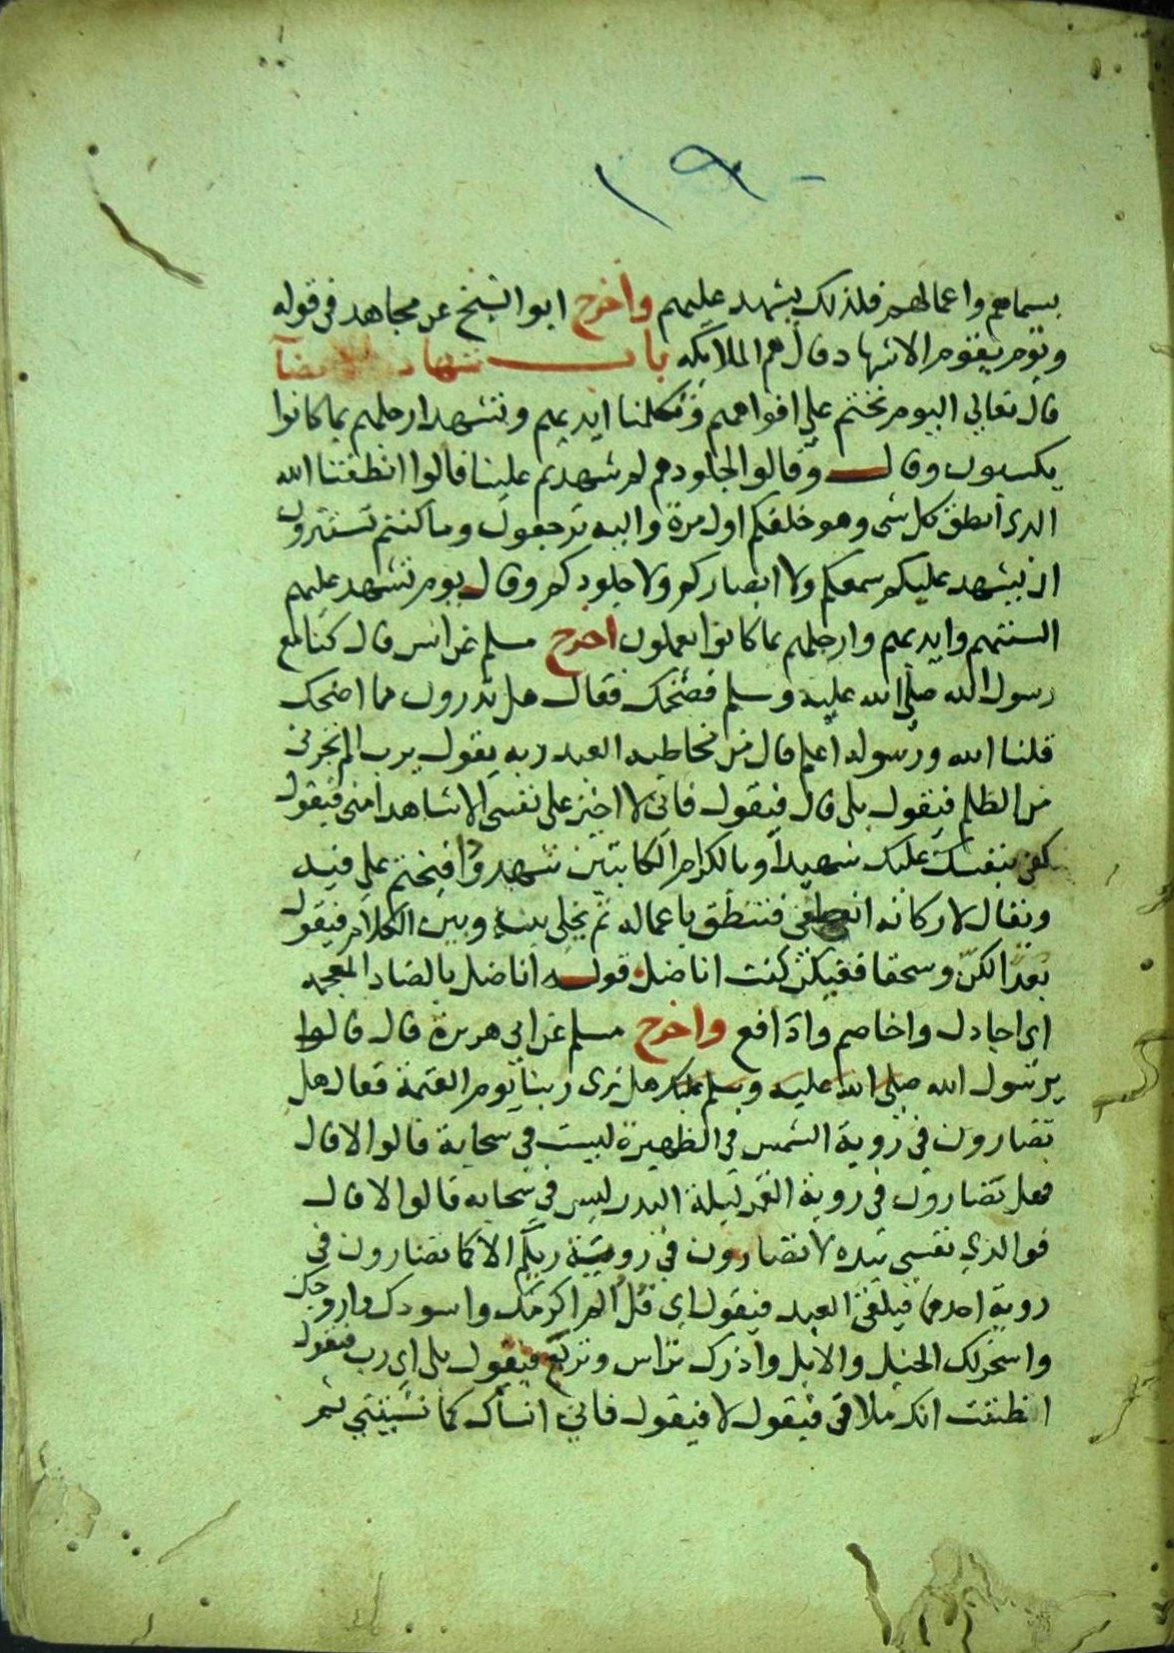 ١٩٠
بسيماهم واعمالهم فلذلك يشهد عليهم واخرج ابو الشيخ عن مجاهد في قوله
ويوم يقوم الاشهاد قال هم الملايكه باب شهاد
قال تعالي اليوم نختم علي افواههم وتكلمنا ايديهم وتشهد ارجلهم بما كانوا
يكسبون وقال وقالوا لجلودهم لم شهدتم علينا قالوا انطقنا الله
الذي انطق كل شي وهو خلقكم اول مرة واليه ترجعون وما كنتم تستترون
ان يشهد عليكم سمعكم ولا ابصاركم ولا جلودكم وقال يوم تشهد عليهم
السنتهم وايديهم وارجلهم بما كانوا يعملون اخرج مسلم عن انس قال كنا مع
رسول الله صلي الله عليه وسلم فضحك فقال هل تدرون مما اضحك
قلنا الله ورسوله اعلم قال من مخاطبه العبد ربه يقول يرب الم تجرني
من الظلم فيقول بلي قال فيقول فاني لا اجيز علي نفسي الا شاهدا مني فيقول
كفي بنفسك عليك شهيدا وبالكرام الكاتبين شهودا فيختم علي فيه
ويقال لاركانه انطقي فتنطق باعماله ثم يخلي بينه وبين الكلام فيقول
بعدا لكن وسحقا فعنكن كنت اناضل قوله اناضل بالضاد المعجمه
اي اجادل واخاصم وادافع واخرج مسلم عن ابي هريرة قال قالوا
يرسول الله صلي الله عليه وسلم هل نري ربنا يوم القيمة فقال هل
تضارون في روية الشمس في الظهيرة ليست في سحابة قالوا لا قال
فهل تضارون في روية القمر ليلة البدر ليس في سحابه قالوا لا قال
فوالذي نفسي بيده لا تضارون في روية ربكم الا كما تضارون في
روية احدهما فيلقي العبد فيقول اي فل الم اكرمك واسودك وازوجك
واسخر لك الخيل والابل واذرك تراس وتربع فيقول بلي اي رب فيقول
افظننت انك ملاقي فيقول لا فيقول فاني انساك كما نسيتني ثم